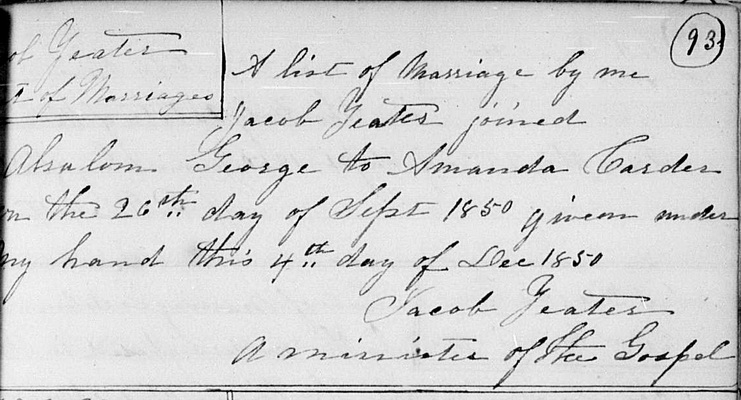 93
ob Yeates
t of Marriages
A list of Marriage by me
Jacob Yeates joined
Absalom George to Amanda Carder
on the 26th day of Sept 1850 giveen under
my hand this 4th day of Dec 1850
Jacob Yeates
A minister of the Gospel